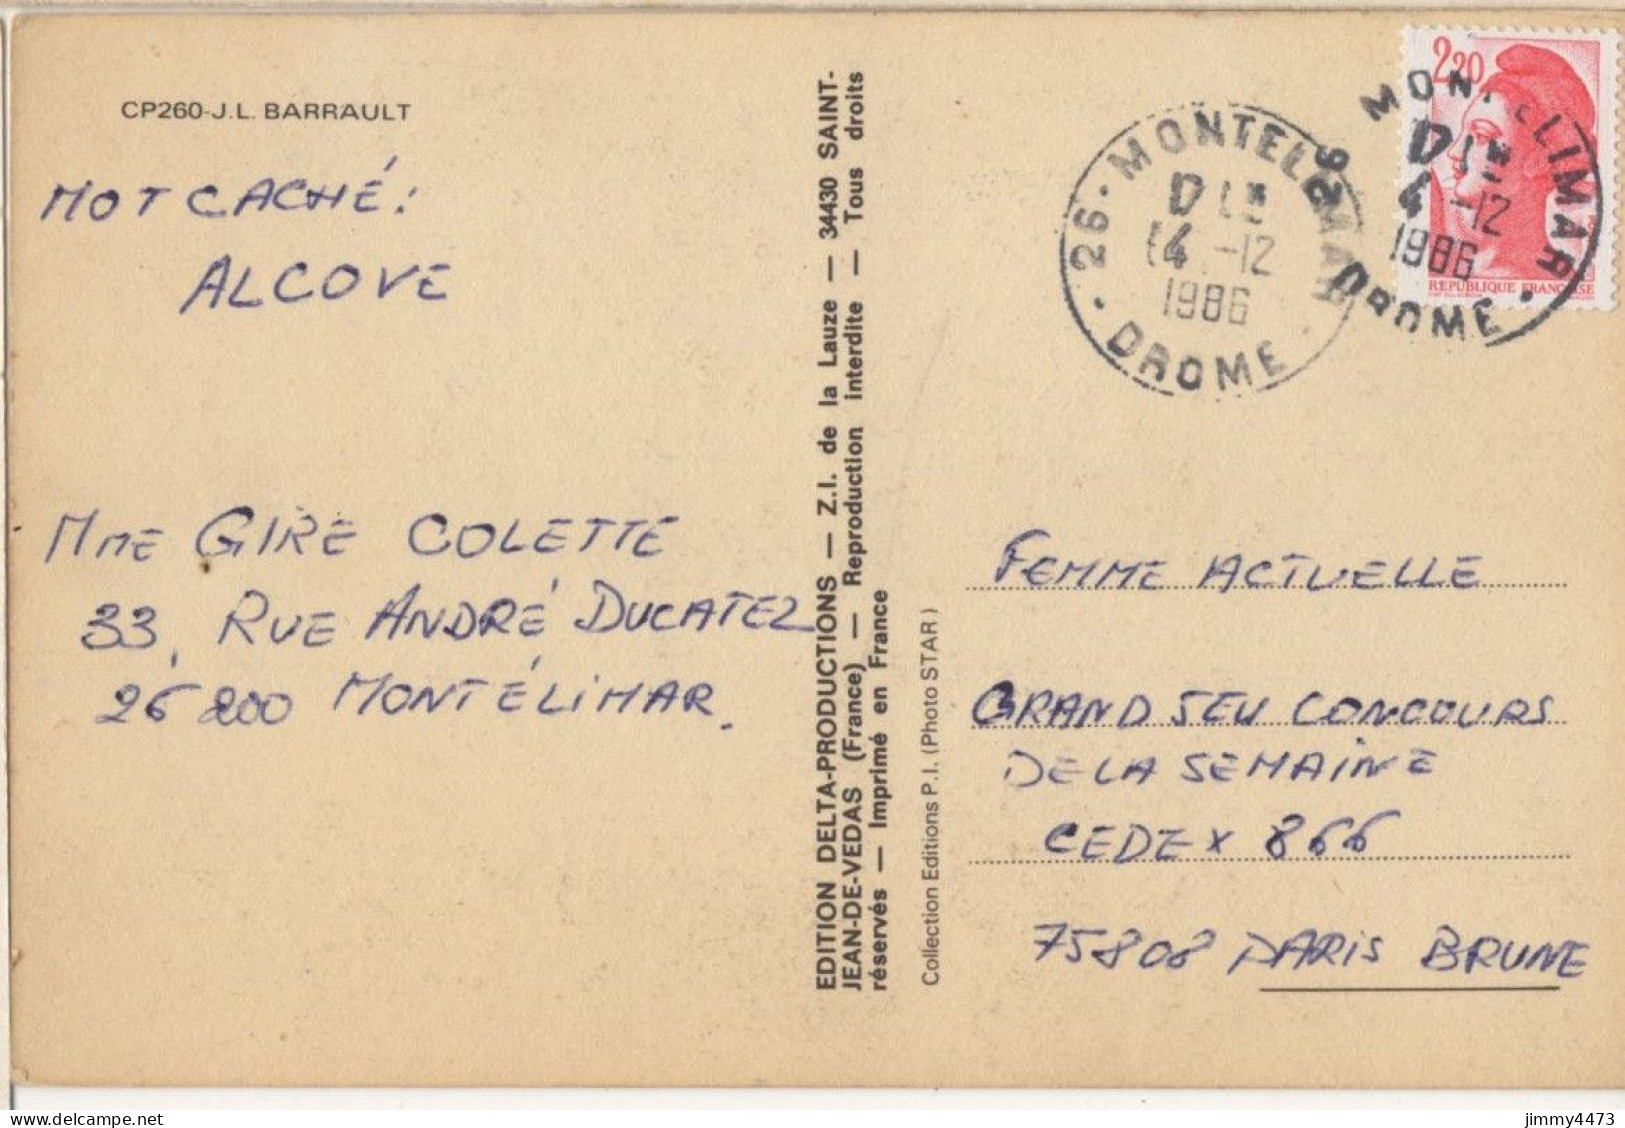 CP260-J.L. BARRAULT
MOT CACHÉ:
ALCOVE
MME GIRE COLETTE
33, RUE ANDRÉ DUCATEZ
26 200 MONTÉLIMAR.
EDITION DELTA-PRODUCTIONS — Z.I. de la Lauze — 34430 SAINT-
JEAN-DE-VEDAS (France) — Reproduction interdite — Tous droits
réservés — Imprimé en France
Collection Editions P.I. (Photo STAR)
26 · MONTELIMAR
4 -12
1986
· DROME ·
2,20
REPUBLIQUE FRANCAISE
26 MONTELIMAR
4 -12
1986
DROME ·
FEMME ACTUELLE
GRAND JEU CONCOURS
DE LA SEMAINE
CEDEX 866
75808 PARIS BRUNE
jimmy4473